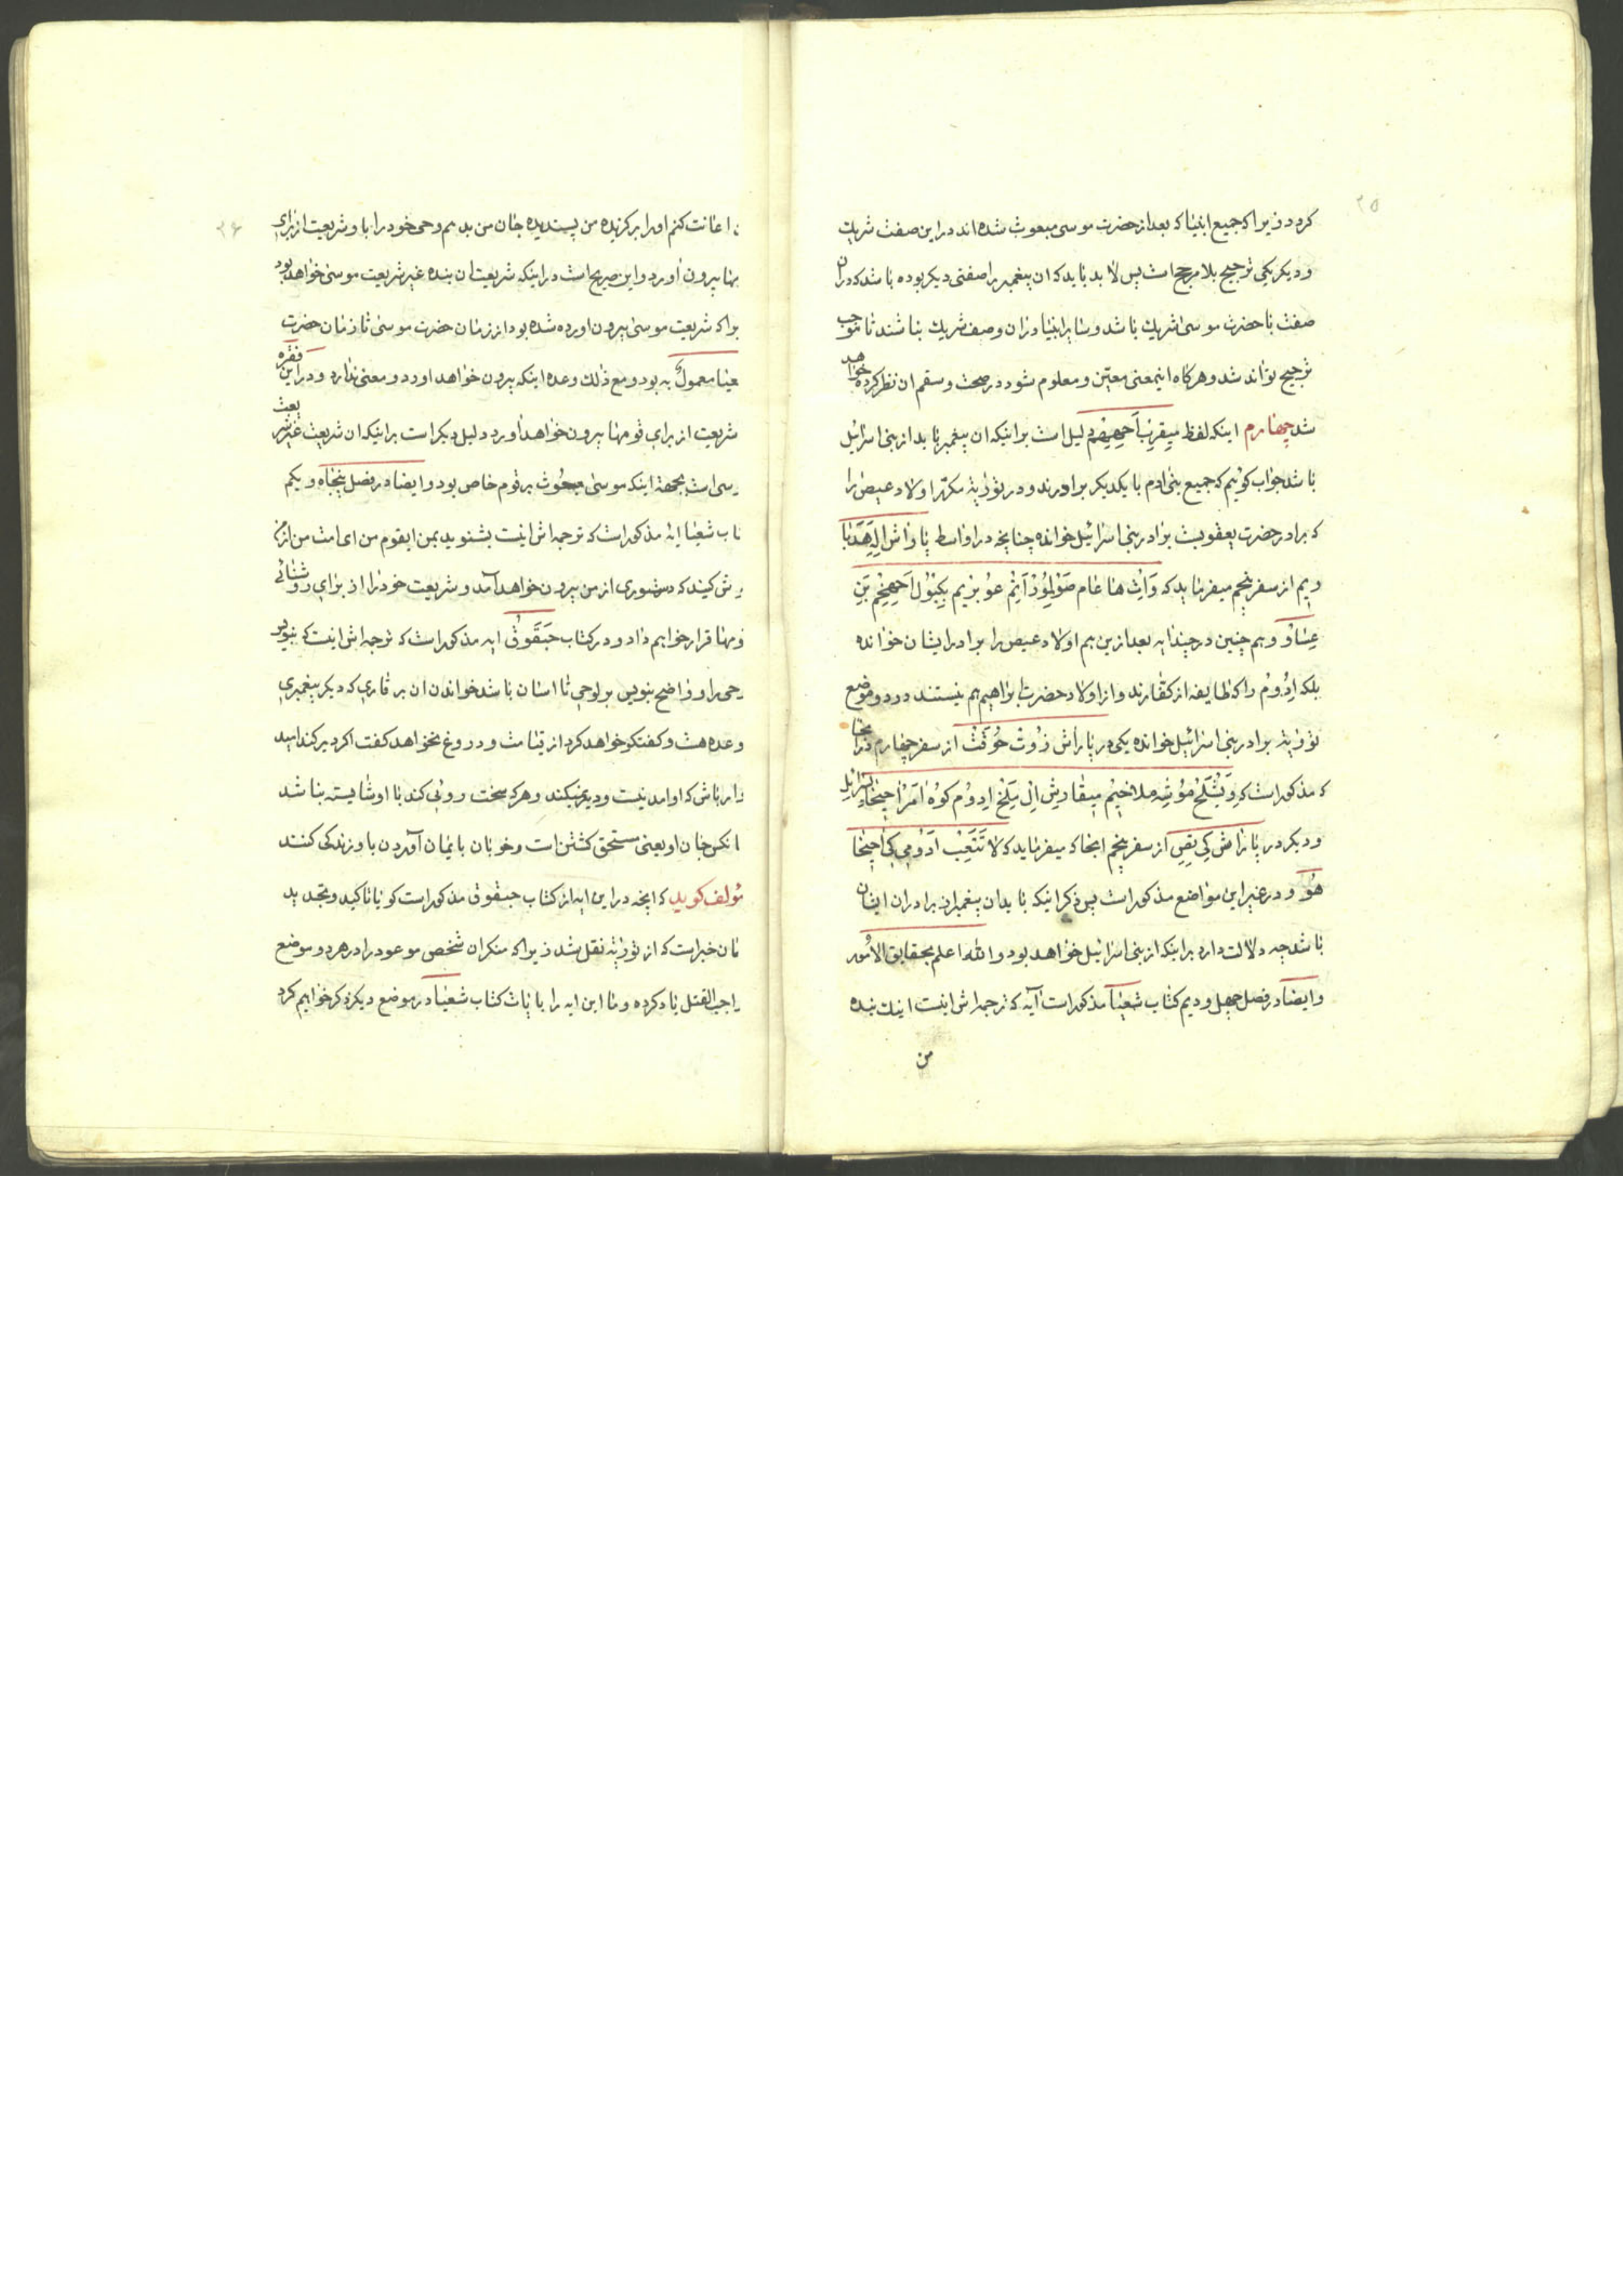 ۲۵
کردد زیرا که جمیع انبیا که بعد از حضرت موسی مبعوث شده اند در این صفت شریک
و دیگر یکی ترجیح بلا مرجح است پس لا بد باید که ان پیغمبر را صفتی دیگر بوده باشد که در ان
صفت با حضرت موسی شریک باشد و سایر انبیا در ان وصف شریک نباشند تا موجب
ترجیح تواند شد و هرکاه اینمعنی معین و معلوم شود در صحت و سقم ان نظر کرده خواهد
شد چهارم اینکه لفظ میقرب احیهم دلیل است بر اینکه ان پیغمبر باید از بنی اسرائیل
باشد جواب کوئیم که جمیع بنی ادم با یکدیکر برادرند و در توریة مکرر اولاد عیص را
که برادر حضرت یعقوبست برادر بنی اسرائیل خوانده چنانچه در اواسط پاراش اله هدبا
ریم از سفر پنجم میفرماید که وات هاعام صو لیؤر اتم عوبریم بکبول احیخم بنی
عساو و هم چنین در چند ایه بعد ازین هم اولاد عیص را برادر ایشان خوانده
بلکه ادوم را که طایفه از کفارند و از اولاد حضرت ابراهیم هم نیستند در دو موضع
توریة برادر بنی اسرائیل خوانده یکی در پاراش زوت حوقت از سفر چهارم در انجا
که مذکور است که ویشلح موشه ملاخیم میقادیش ال میلخ ادوم کوه امر احیخا یسرائیل
و دیگر در پاراش کی تصی از سفر پنجم انجا که میفرماید که لا تتعب ادومی کی احیخا
هو و در غیر این مواضع مذکور است پس ذکر اینکه باید ان پیغمبر از برادران ایشان
باشد چه دلالت دارد بر اینکه از بنی اسرائیل خواهد بود و الله اعلم بحقایق الامور
و ایضا در فصل چهل و دیم کتاب شعیا مذکور است آیه که ترجمه اش اینست اینک بنده
من
۲۶
اعانت کنم او را برکزیده من پسندیده جان من بدهم وحی خود را با و شریعت از برای
بیرون اورد و این صریح است در اینکه شریعت ان بنده غیر شریعت موسی خواهد بود
که شریعت موسی بیرون اورده شده بود از زمان حضرت موسی تا زمان حضرت
شعیا معمول به بود و مع ذلک وعده اینکه بیرون خواهد اورد و معنی ندارد و در این فقره
شریعت از برای قومها بیرون خواهد اورد دلیل دیکر است بر اینکه ان شریعت غیر شریعت
موسی است بجهة اینکه موسی مبعوث بر قوم خاص بود و ایضا در فصل پنجاه و یکم
کتاب شعیا ایه مذکور است که ترجمه اش اینست بشنوید بمن ایقوم من ای امت من از من
کوش کنید که دستوری از من بیرون خواهد آمد و شریعت خود را از برای روشنائی
قومها قرار خواهیم داد و در کتاب حبقوق ایه مذکور است که ترجمه اش اینست که بنویس
وحی را و واضح بنویس بر لوحی تا اسان باشد خواندن ان بر قاری که دیکر پیغمبری
وعده هست و کفتکو خواهد کرد از قیامت و دروغ نخواهد کفت اکر دیر کند امید
دار باش که او امدنیست و دیر نمیکند و هرکه سخت روئی کند با او شایسته نباشد
انکس جان او یعنی مستحق کشتن است و خوبان بایمان آوردن با و زندکی کنند
مؤلف کوید که انچه در این ایه از کتاب حبقوق مذکور است کویا تاکید و تجدید
همان خبر است که از توریة نقل شد زیرا که منکران شخص موعود را در هر دو موضع
واجب القتل یاد کرده و ما این ایه را با ایات کتاب شعیا در موضع دیکر ذکر خواهیم کرد